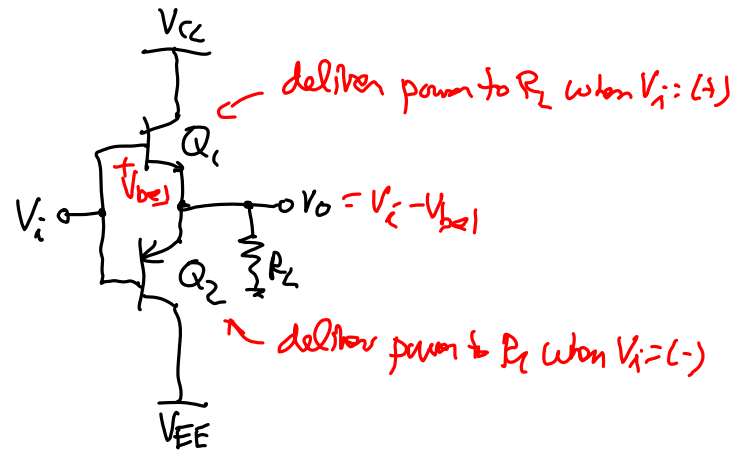 Vcc
deliver power to RL when Vi = (+)
Q1
+
Vbe1
Vi
Vo = Vi - Vbe1
Q2
RL
deliver power to RL when Vi = (-)
VEE